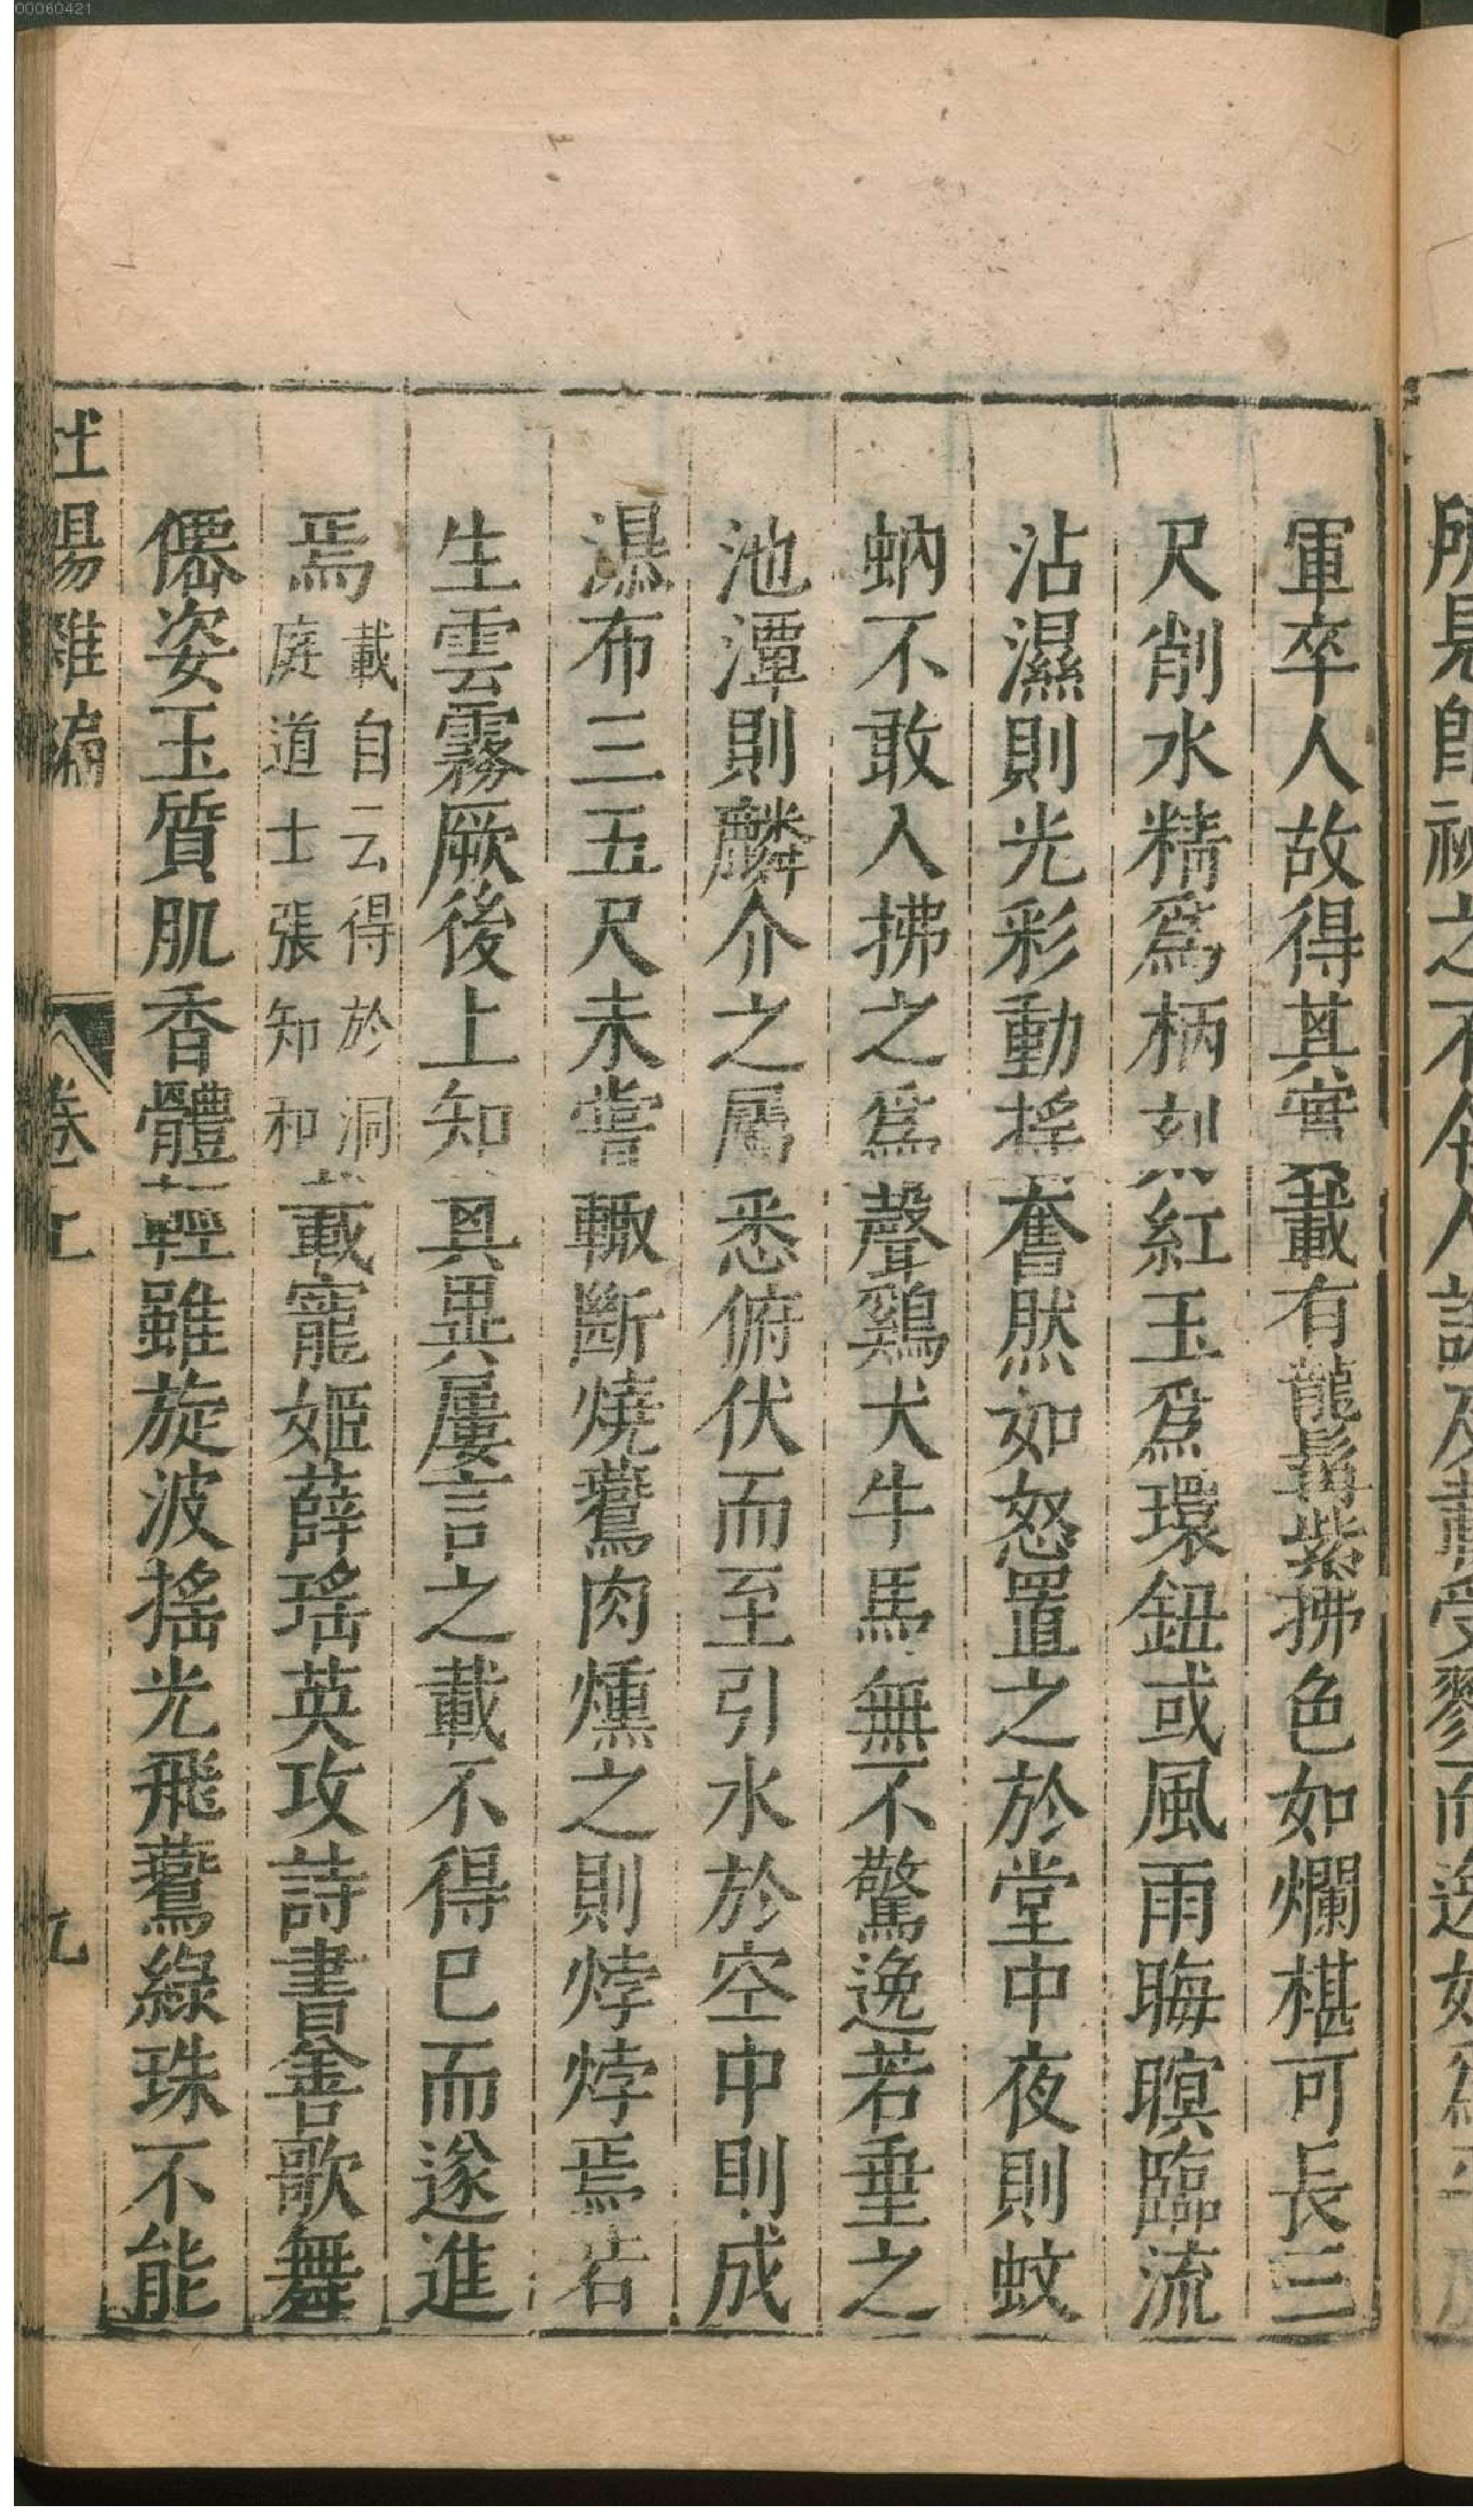 軍卒人故得其實載有龍髯紫拂色如爛椹可長三
尺削水精爲柄刻紅玉爲環鈕或風雨晦暝臨流
沾濕則光彩動搖奮然如怒置之於堂中夜則蚊
蚋不敢入拂之爲聲鷄犬牛馬無不驚逸若垂之
池潭則麟介之屬悉俯伏而至引水於空中則成
瀑布三五尺未嘗輙斷燒鷰肉燻之則烞烞焉若
生雲霧厥後上知其異屢言之載不得已而遂進
焉載自云得於洞庭道士張知和載寵姬薛瑤英攻詩書善歌舞
僊姿玉質肌香體輕雖旋波搖光飛鷰綠珠不能
杜陽雜編
卷上
九
00060421